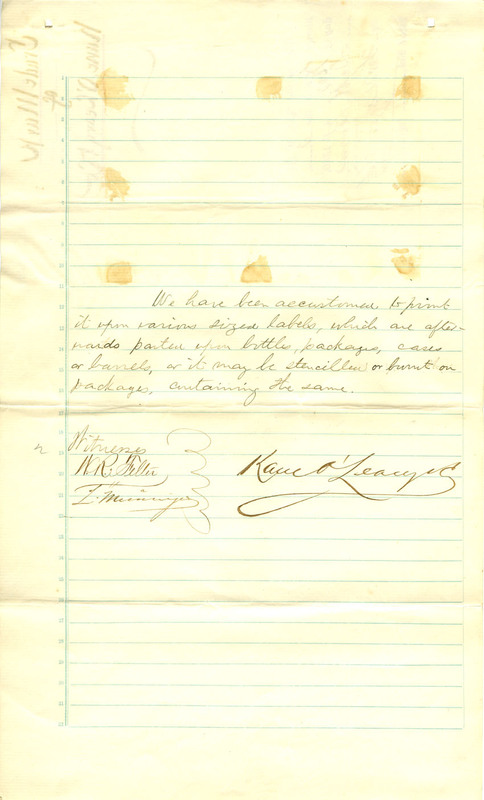 We have been accustomed to print
it upon various sized labels, which are after-
wards pasted upon bottles, packages, cases
or barrels, or it may be stencilled or burnt on
packages, containing the same.
Witnesses
W. R.
Kane O'Leary & Co